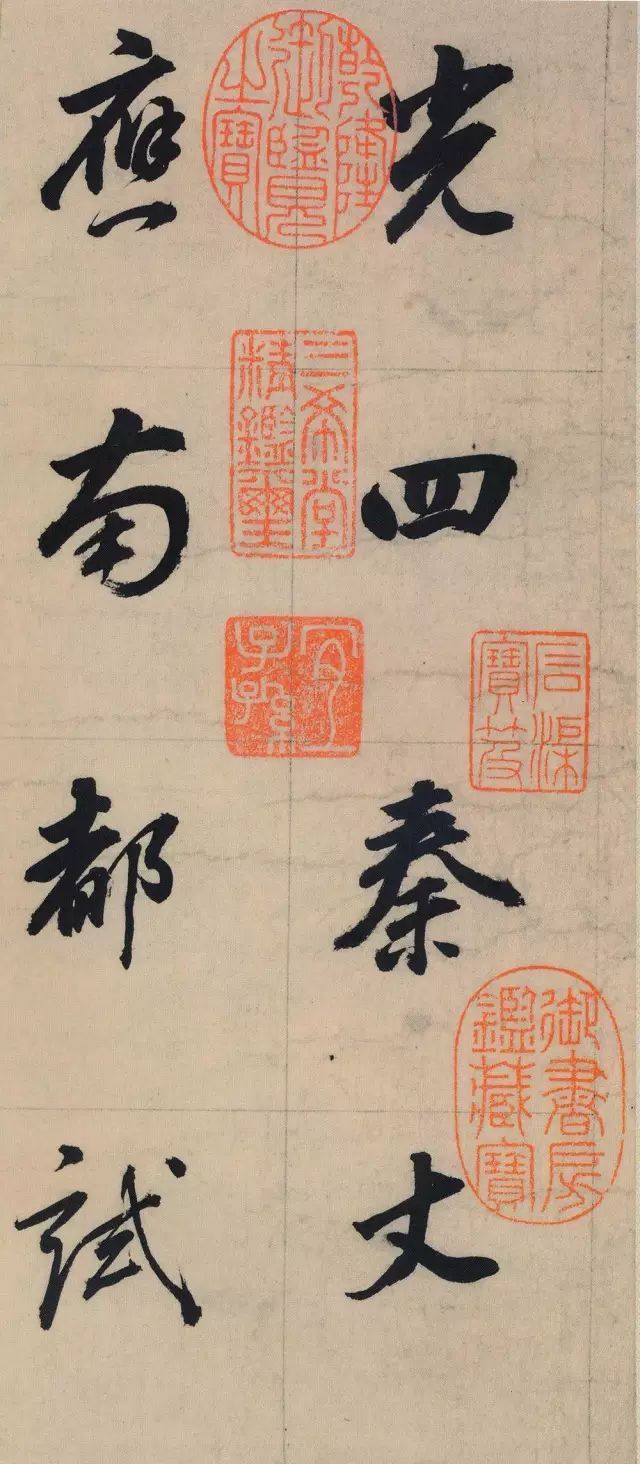 光四秦丈
應南都試
乾隆御覽之寶
三希堂精鑒璽
宜子孫
石渠寶笈
御書房鑑藏寶